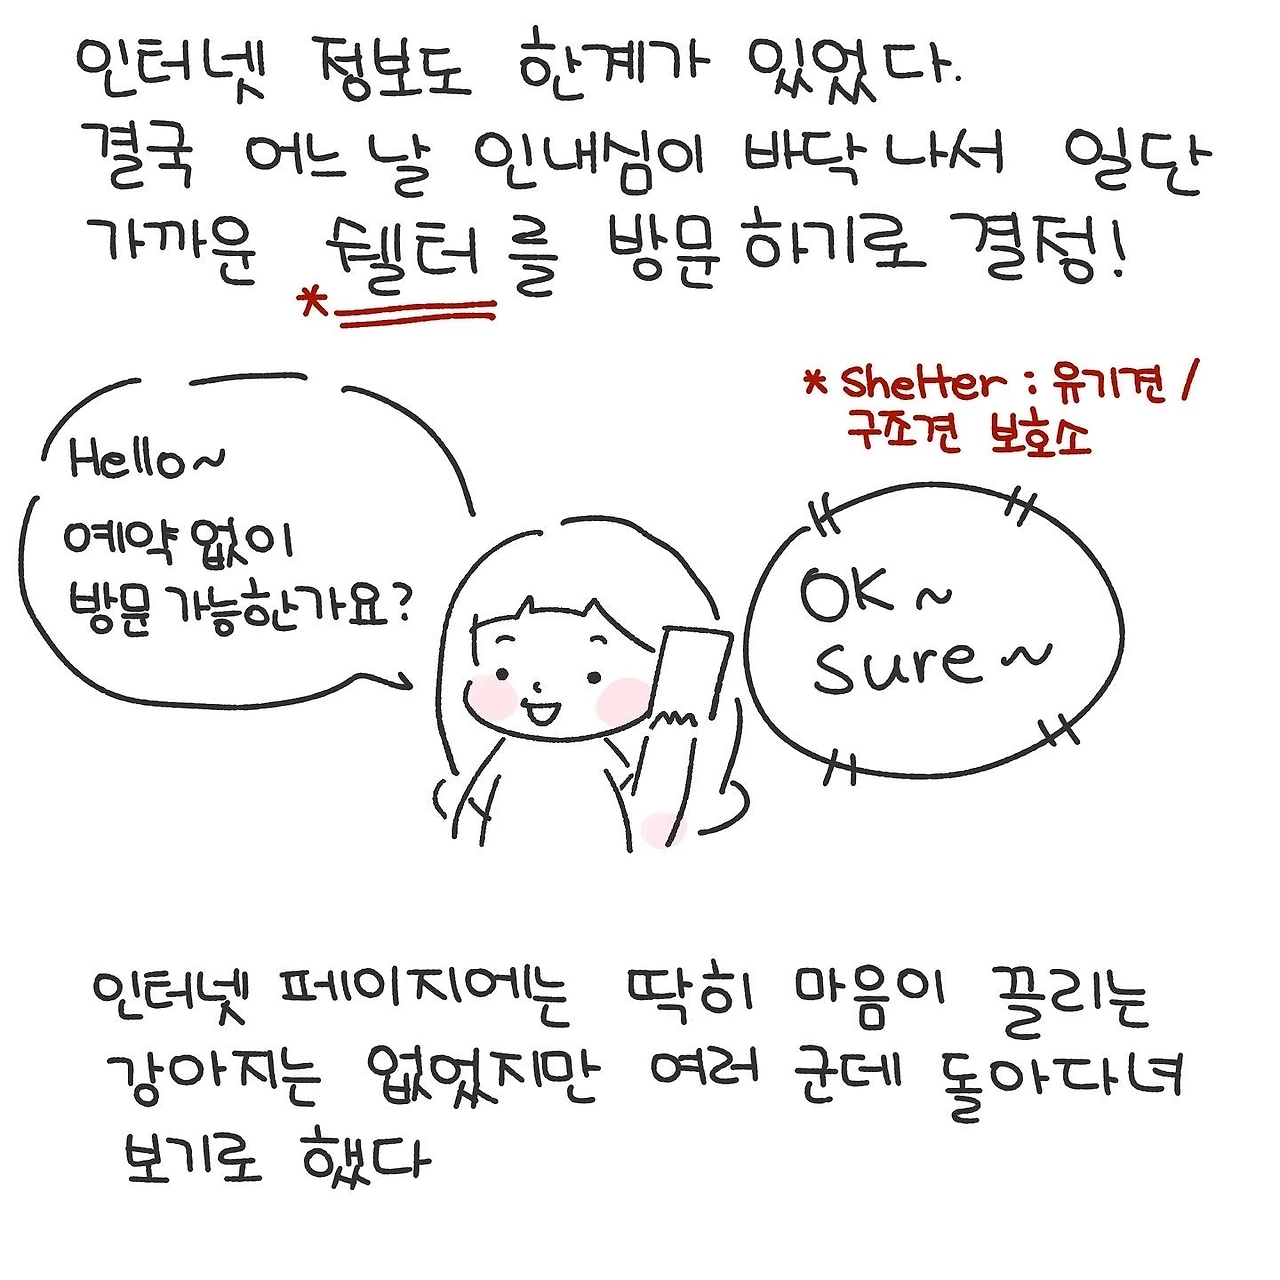 인터넷 정보도 한계가 있었다.
결국 어느 날 인내심이 바닥 나서 일단
가까운 쉘터를 방문하기로 결정!
*
* Shelter : 유기견 /
구조견 보호소
Hello~
예약 없이
방문 가능한가요?
OK~
sure~
인터넷 페이지에는 딱히 마음이 끌리는
강아지는 없었지만 여러 군데 돌아다녀
보기로 했다